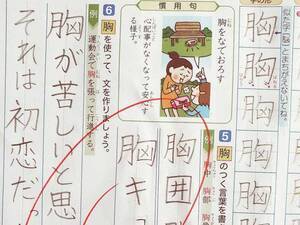 似た字「脳」とまちがえないでね。
胸
胸
胸
胸
胸
慣用句
胸をなでおろす
心配事がなくなって安心す
る様子。
5 胸のつく言葉を書
胸中
胸部
胸囲
胸キュ
6 胸を使って、文を作りましょう。
例
運動会で胸を張って行進する。
胸が苦しいと思
それは初恋だっ